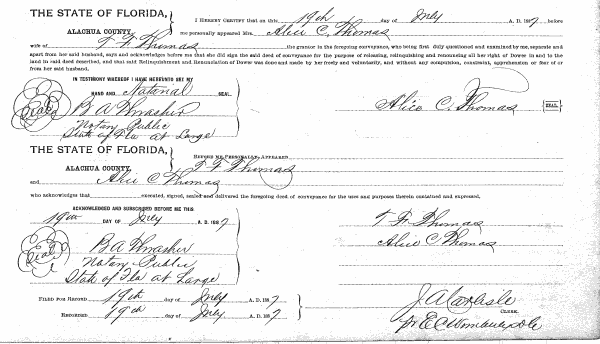 THE STATE OF FLORIDA,
ALACHUA COUNTY.
I HEREBY CERTIFY that on this 19th day of July A. D. 1887, before
me personally appeared Mrs. Alice C. Thomas
wife of T F Thomas the grantor in the foregoing conveyance, who being first duly questioned and examined by me, separate and
apart from her said husband, says and acknowledges before me that she did sign the said deed of conveyance for the purpose of releasing, relinquishing and renouncing all her right of Dower in and to the
land in said deed described, and that said Relinquishment and Renunciation of Dower was done and made by her freely and voluntarily, and without any compulsion, constraint, apprehension or fear of or
from her said husband.
IN TESTIMONY WHEREOF I HAVE HEREUNTO SET MY
HAND AND Notarial SEAL.
Seal
B A Thrasher
Notary Public
State of Fla at Large
Alice C. Thomas
SEAL.
THE STATE OF FLORIDA,
ALACHUA COUNTY.
BEFORE ME PERSONALLY APPEARED T F Thomas
and Alice C Thomas
who acknowledges that executed, signed, sealed and delivered the foregoing deed of conveyance for the uses and purposes therein contained and expressed.
ACKNOWLEDGED AND SUBSCRIBED BEFORE ME THIS
19th DAY OF July A. D. 1887
Seal
B A Thrasher
Notary Public
State of Fla at Large
T. F. Thomas
Alice C Thomas
FILED FOR RECORD 19th day of July A. D. 1887
RECORDED 19th day of July A. D. 1887
J. A. Carlisle
CLERK.
pr E C